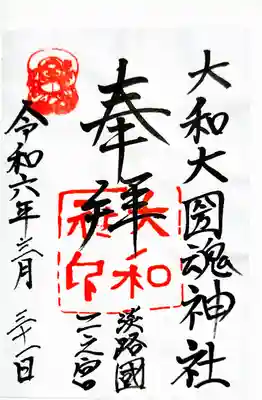 大和大圀魂神社
奉拝
淡路國
二之宮
令和六年三月三十一日